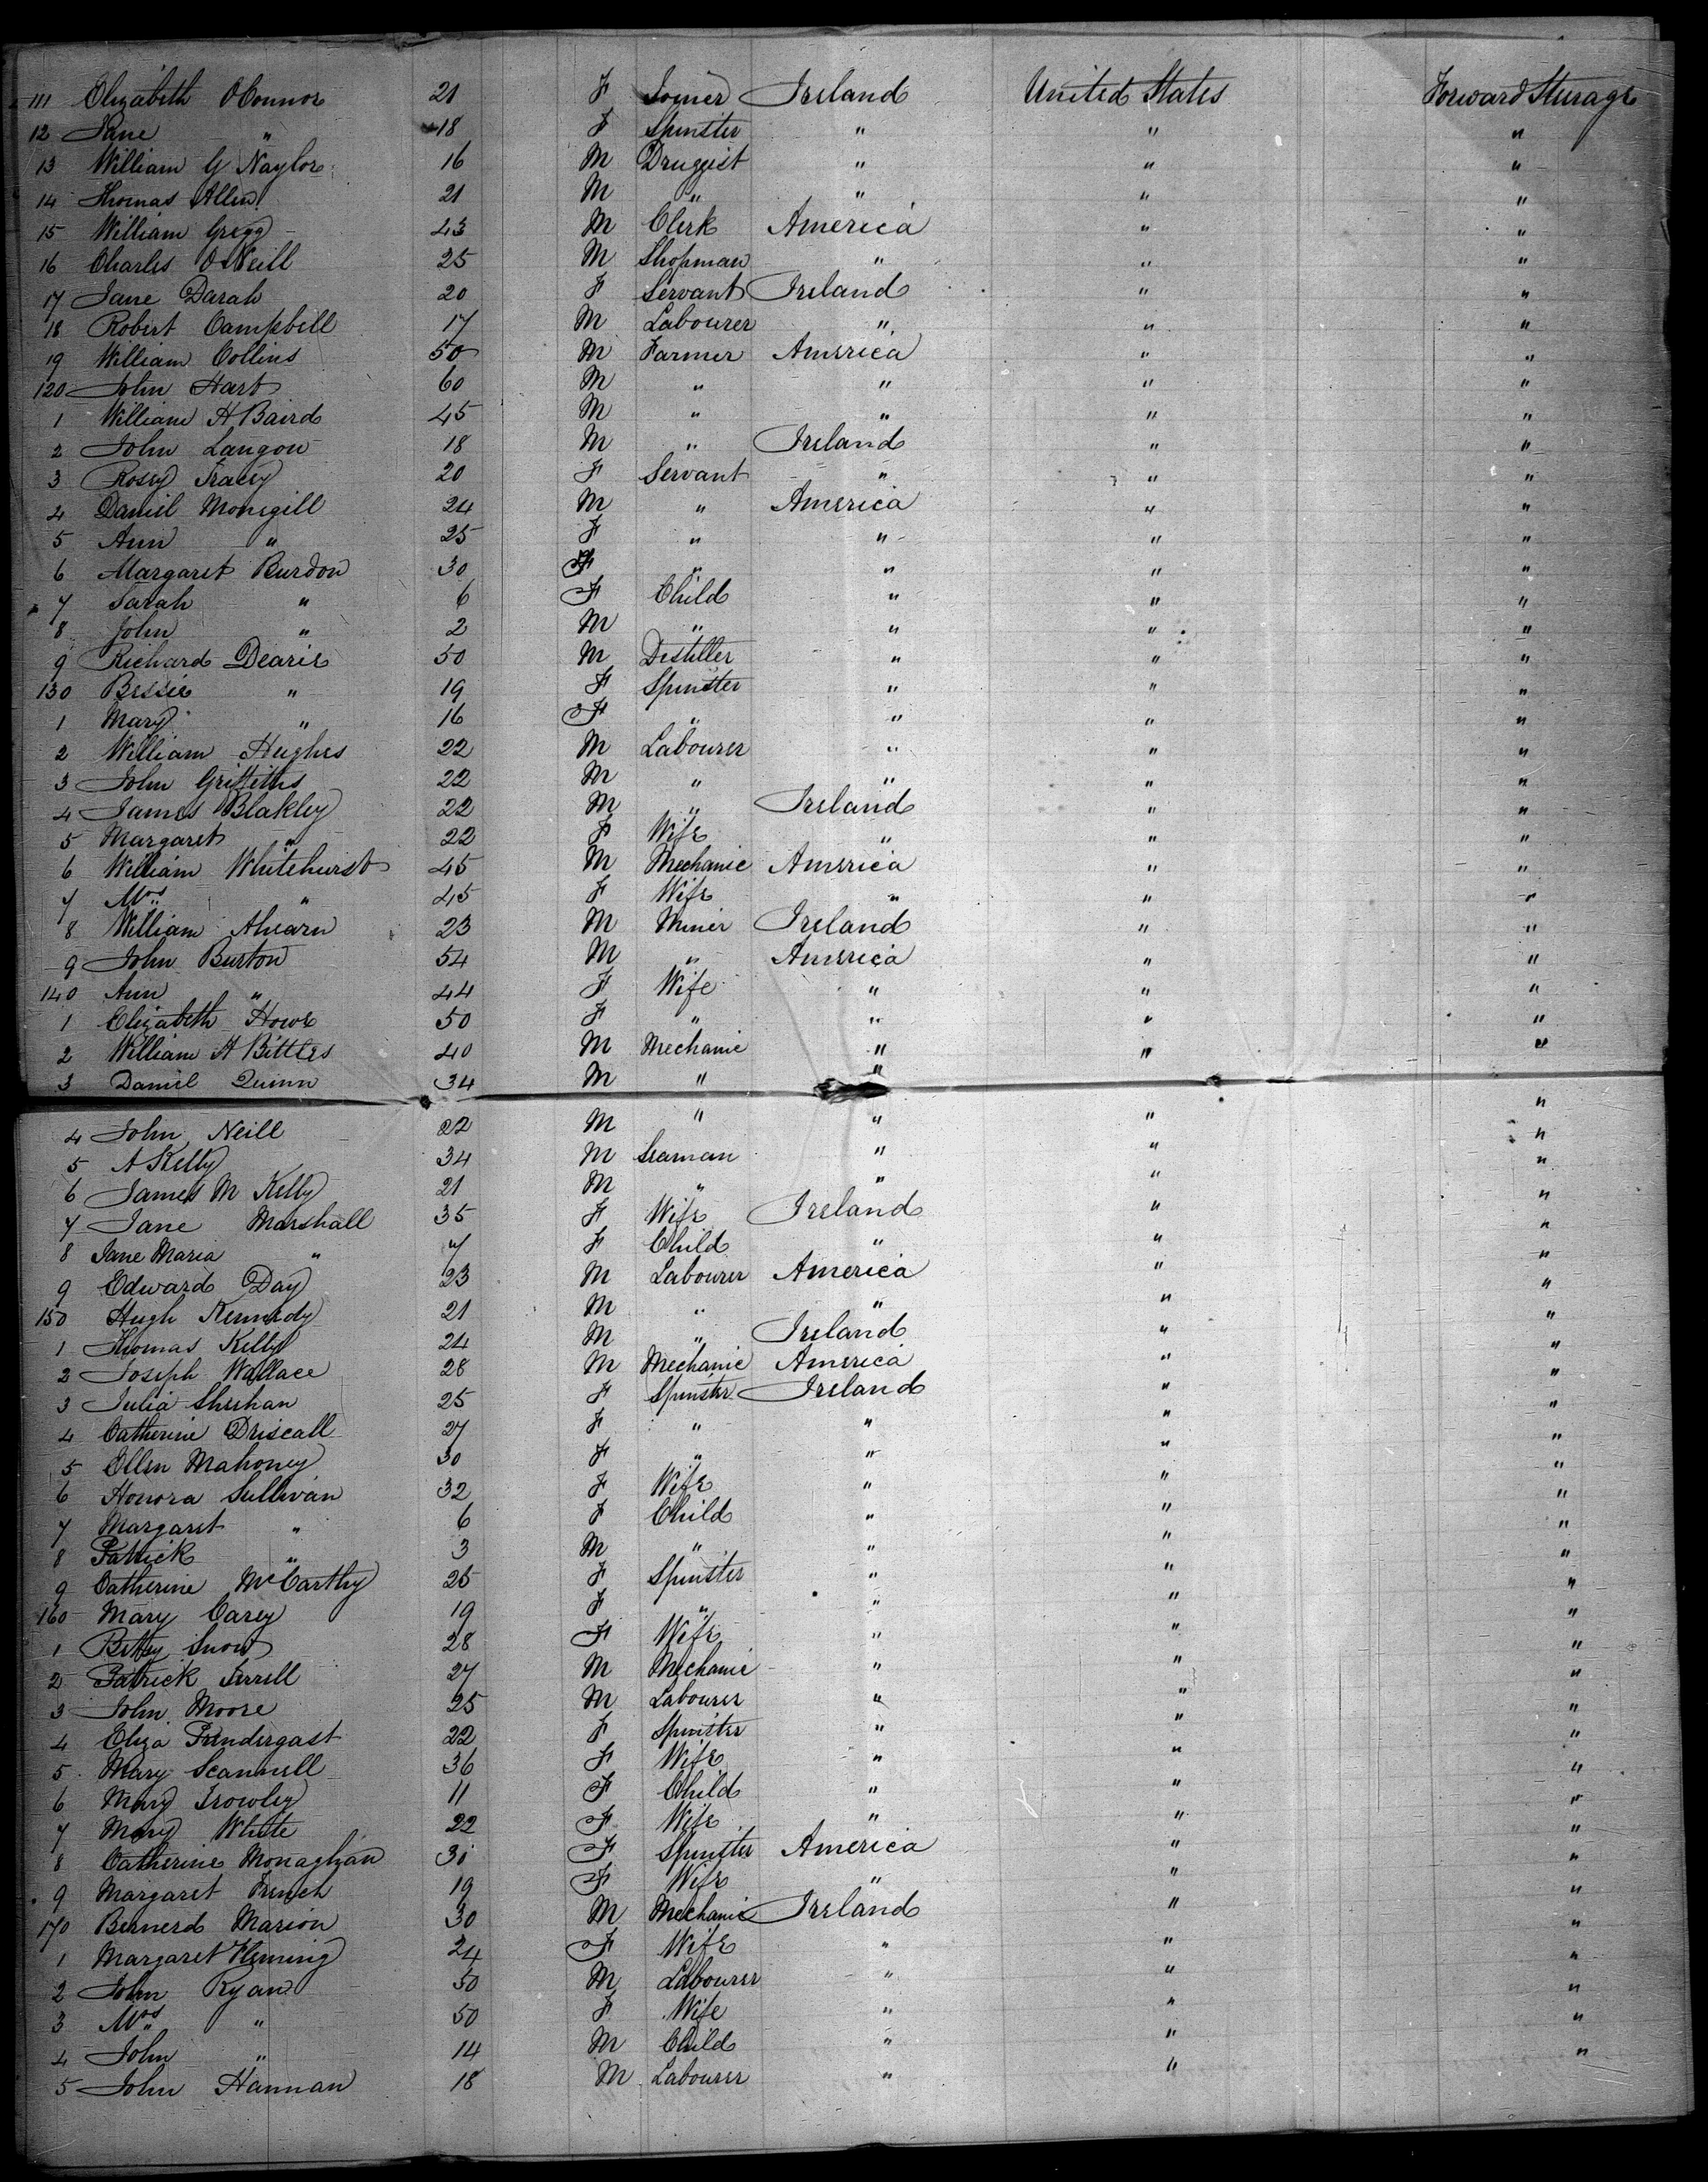 111 Elizabeth OConnor 21 F Joiner Ireland United States Forward Sterage
12 Jane " 18 F Spinster " " "
13 William G Naylor 16 M Druggist " " "
14 Thomas Allen 21 M " " " "
15 William Gregg 43 M Clerk America " "
16 Charles O'Neill 25 M Shopman " " "
17 Jane Darah 20 F Servant Ireland " "
18 Robert Campbell 17 M Labourer " " "
19 William Collins 50 M Farmer America " "
120 John Hart 60 M " " " "
1 William H Baird 45 M " " " "
2 John Langon 18 M " Ireland " "
3 Rosey Tracey 20 F Servant " " "
4 Daniel Monegill 24 M " America " "
5 Ann " 25 F " " " "
6 Margaret Burdon 30 F " " " "
7 Sarah " 6 F Child " " "
8 John " 2 M " " " "
9 Richard Dearie 50 M Distiller " " "
130 Bessie " 19 F Spinster " " "
1 Mary " 16 F " " " "
2 William Hughes 22 M Labourer " " "
3 John Griffiths 22 M " " " "
4 James Blakley 22 M " Ireland " "
5 Margaret " 22 F Wife " " "
6 William Whitehurst 45 M Mechanic America " "
7 Mrs " 45 F Wife " " "
8 William Ahearn 23 M Miner Ireland " "
9 John Burton 54 M " America " "
140 Ann " 44 F Wife " " "
1 Elizabeth Howe 50 F " " " "
2 William A Bittles 40 M Mechanic " " "
3 Daniel Quinn 34 M " "
4 John Neill 22 M " " " "
5 A Kelly 34 M Seaman " " "
6 James M Kelly 21 M " " " "
7 Jane Marshall 35 F Wife Ireland " "
8 Jane Maria " 7 F Child " " "
9 Edward Day 23 M Labourer America " "
150 Hugh Kennedy 21 M " " " "
1 Thomas Kelly 24 M " Ireland " "
2 Joseph Wallace 28 M Mechanic America " "
3 Julia Sheehan 25 F Spinster Ireland " "
4 Catherine Driscall 27 F " " " "
5 Ellen Mahoney 30 F " " " "
6 Honora Sullivan 32 F Wife " " "
7 Margaret " 6 F Child " " "
8 Patrick " 3 M " " " "
9 Catherine McCarthy 25 F Spinster " " "
160 Mary Carey 19 F " " " "
1 Betsy Snow 28 F Wife " " "
2 Patrick Terrell 27 M Mechanic " " "
3 John Moore 25 M Labourer " " "
4 Eliza Prendergast 22 F Spinster " " "
5 Mary Scannell 36 F Wife " " "
6 Mary Trowley 11 F Child " " "
7 Mary White 22 F Wife " " "
8 Catherine Monaghan 31 F Spinster America " "
9 Margaret French 19 F Wife " " "
170 Bernerd Marion 30 M Mechanic Ireland " "
1 Margaret Fleming 24 F Wife " " "
2 John Ryan 50 M Labourer " " "
3 Mrs " 50 F Wife " " "
4 John " 14 M Child " " "
5 John Hannan 18 M Labourer " "